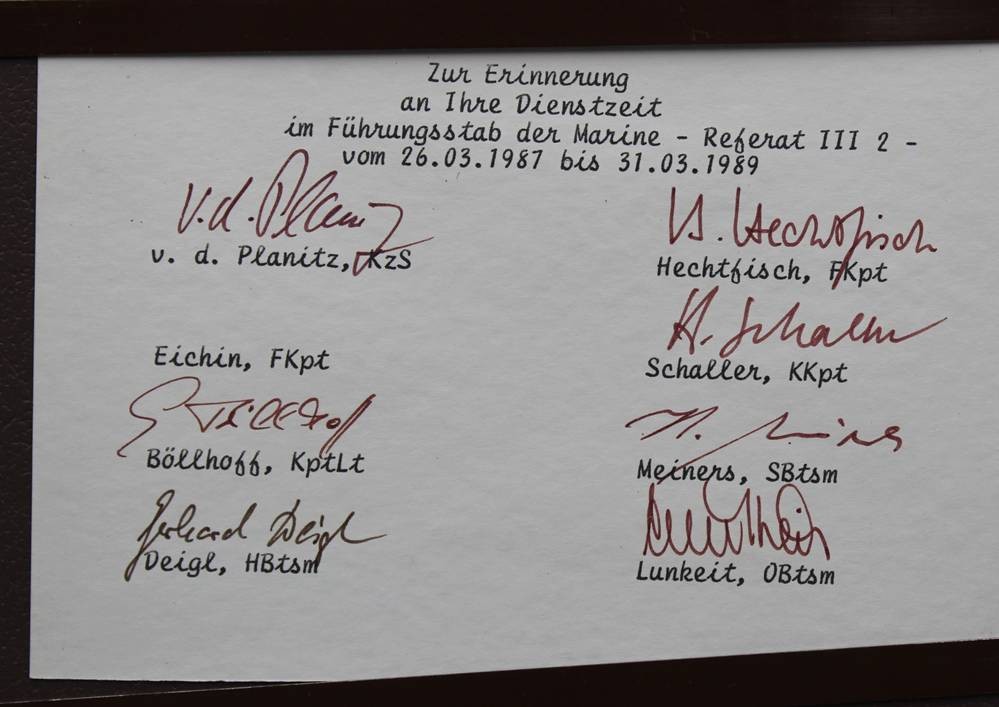 Zur Erinnerung
an Ihre Dienstzeit
im Führungsstab der Marine - Referat III 2 -
vom 26.03.1987 bis 31.03.1989
v.d. Planitz
v. d. Planitz, KzS
H. Hechtfisch
Hechtfisch, FKpt
H. Schaller
Eichin, FKpt
Schaller, KKpt
Böllhoff, KptLt
Meiners, SBtsm
Gerhard Deigl
Deigl, HBtsm
Lunkeit, OBtsm